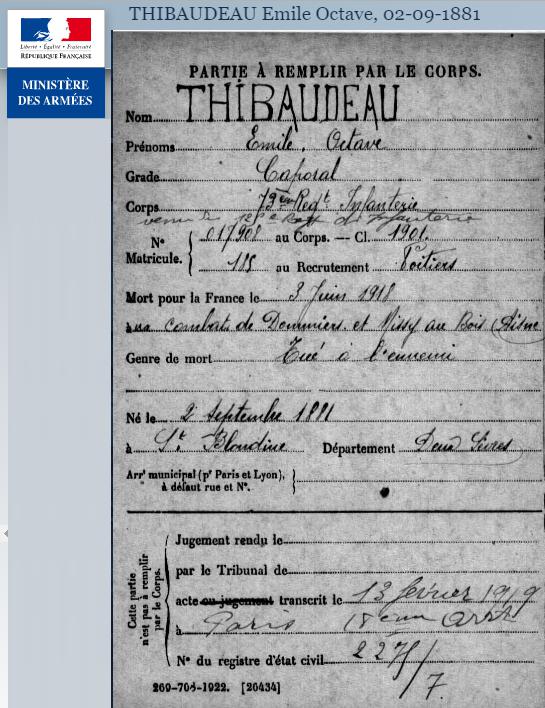 THIBAUDEAU Emile Octave, 02-09-1881
Liberté • Égalité • Fraternité
RÉPUBLIQUE FRANÇAISE
MINISTÈRE
DES ARMÉES
PARTIE À REMPLIR PAR LE CORPS.
Nom THIBAUDEAU
Prénoms Emile, Octave
Grade Caporal
Corps Regt Infanterie
venu du 128e d'Infanterie
N° Matricule. 017908 au Corps. — Cl. 1901.
au Recrutement Poitiers
Mort pour la France le 3 Juin 1918
combats de Dommiers et Missy au Bois (Aisne
Genre de mort Tué à l'ennemi
Né le 2 Septembre 1881
à St Blandine Département Deux Sèvres
Arrt municipal (pr Paris et Lyon),
à défaut rue et N°.
Cette partie n'est pas à remplir par le Corps.
Jugement rendu le
par le Tribunal de
acte ou jugement transcrit le 13 février 1919
à Paris 18eme Arrt
N° du registre d'état civil 227/7.
269-708-1922. [26434]